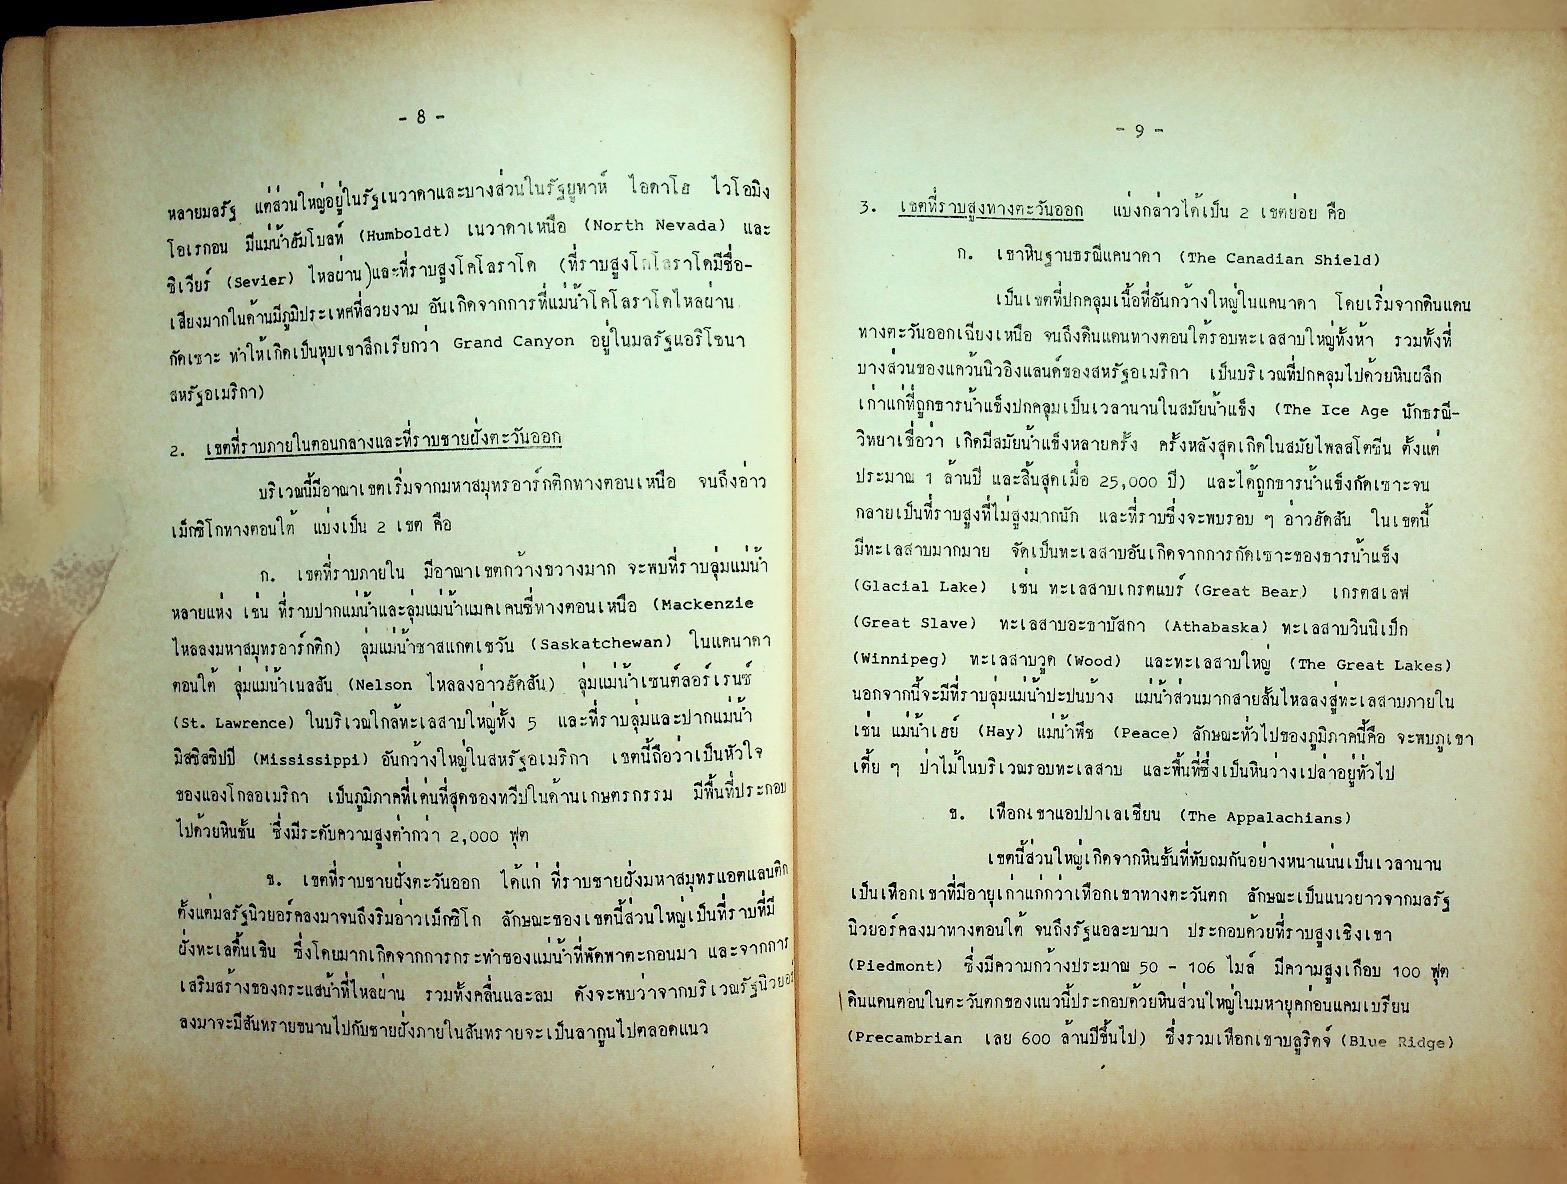 - 8 -
หลายมลรัฐ แต่ส่วนใหญ่อยู่ในรัฐเนวาดาและบางส่วนในรัฐยูทาห์ ไอดาโฮ ไวโอมิง
โอเรกอน มีแม่น้ำฮัมโบลท์ (Humboldt) เนวาดาเหนือ (North Nevada) และ
ซิเวียร์ (Sevier) ไหลผ่าน)และที่ราบสูงโคโลราโด (ที่ราบสูงโคโลราโดมีชื่อ-
เสียงมากในด้านมีภูมิประเทศที่สวยงาม อันเกิดจากการที่แม่น้ำโคโลราโดไหลผ่าน
กัดเซาะ ทำให้เกิดเป็นหุบเขาลึกเรียกว่า Grand Canyon อยู่ในมลรัฐแอริโซนา
สหรัฐอเมริกา)
2. เขตที่ราบภายในตอนกลางและที่ราบชายฝั่งตะวันออก
บริเวณนี้มีอาณาเขตเริ่มจากมหาสมุทรอาร์กติกทางตอนเหนือ จนถึงอ่าว
เม็กซิโกทางตอนใต้ แบ่งเป็น 2 เขต คือ
ก. เขตที่ราบภายใน มีอาณาเขตกว้างขวางมาก จะพบที่ราบลุ่มแม่น้ำ
หลายแห่ง เช่น ที่ราบปากแม่น้ำและลุ่มแม่น้ำแมคเคนซี่ทางตอนเหนือ (Mackenzie
ไหลลงมหาสมุทรอาร์กติก) ลุ่มแม่น้ำซาสแกตเชวัน (Saskatchewan) ในแคนาดา
ตอนใต้ ลุ่มแม่น้ำเนลสัน (Nelson ไหลลงอ่าวฮัดสัน) ลุ่มแม่น้ำเซนต์ลอร์เรนซ์
(St. Lawrence) ในบริเวณใกล้ทะเลสาบใหญ่ทั้ง 5 และที่ราบลุ่มและปากแม่น้ำ
มิสซิสซิปปี (Mississippi) อันกว้างใหญ่ในสหรัฐอเมริกา เขตนี้ถือว่าเป็นหัวใจ
ของแองโกลอเมริกา เป็นภูมิภาคที่เด่นที่สุดของทวีปในด้านเกษตรกรรม มีพื้นที่ประกอบ
ไปด้วยหินชั้น ซึ่งมีระดับความสูงต่ำกว่า 2,000 ฟุต
ข. เขตที่ราบชายฝั่งตะวันออก ได้แก่ ที่ราบชายฝั่งมหาสมุทรแอตแลนติก
ตั้งแต่มลรัฐนิวยอร์คลงมาจนถึงริมอ่าวเม็กซิโก ลักษณะของเขตนี้ส่วนใหญ่เป็นที่ราบที่มี
ฝั่งทะเลตื้นเขิน ซึ่งโดยมากเกิดจากการกระทำของแม่น้ำที่พัดพาตะกอนมา และจากการ
เสริมสร้างของกระแสน้ำที่ไหลผ่าน รวมทั้งคลื่นและลม ดังจะพบว่าจากบริเวณรัฐนิวยอร์
ลงมาจะมีสันทรายขนานไปกับชายฝั่งภายในสันทรายจะเป็นลากูนไปตลอดแนว
- 9 -
3. เขตที่ราบสูงทางตะวันออก แบ่งกล่าวได้เป็น 2 เขตย่อย คือ
ก. เขาหินฐานธรณีแคนาดา (The Canadian Shield)
เป็นเขตที่ปกคลุมเนื้อที่อันกว้างใหญ่ในแคนาดา โดยเริ่มจากดินแดน
ทางตะวันออกเฉียงเหนือ จนถึงดินแดนทางตอนใต้รอบทะเลสาบใหญ่ทั้งห้า รวมทั้งที่
บางส่วนของแคว้นนิวอิงแลนด์ของสหรัฐอเมริกา เป็นบริเวณที่ปกคลุมไปด้วยหินผลึก
เก่าแก่ที่ถูกธารน้ำแข็งปกคลุมเป็นเวลานานในสมัยน้ำแข็ง (The Ice Age นักธรณี-
วิทยาเชื่อว่า เกิดมีสมัยน้ำแข็งหลายครั้ง ครั้งหลังสุดเกิดในสมัยไพลสโตซีน ตั้งแต่
ประมาณ 1 ล้านปี และสิ้นสุดเมื่อ 25,000 ปี) และได้ถูกธารน้ำแข็งกัดเซาะจน
กลายเป็นที่ราบสูงที่ไม่สูงมากนัก และที่ราบซึ่งจะพบรอบ ๆ อ่าวฮัดสัน ในเขตนี้
มีทะเลสาบมากมาย จัดเป็นทะเลสาบอันเกิดจากการกัดเซาะของธารน้ำแข็ง
(Glacial Lake) เช่น ทะเลสาบเกรตแบร์ (Great Bear) เกรตสเลฟ
(Great Slave) ทะเลสาบอะธาบัสกา (Athabaska) ทะเลสาบวินนิเป็ก
(Winnipeg) ทะเลสาบวูด (Wood) และทะเลสาบใหญ่ (The Great Lakes)
นอกจากนี้จะมีที่ราบลุ่มแม่น้ำปะปนบ้าง แม่น้ำส่วนมากสายสั้นไหลลงสู่ทะเลสาบภายใน
เช่น แม่น้ำเฮย์ (Hay) แม่น้ำพีช (Peace) ลักษณะทั่วไปของภูมิภาคนี้คือ จะพบภูเขา
เตี้ย ๆ ป่าไม้ในบริเวณรอบทะเลสาบ และพื้นที่ซึ่งเป็นหินว่างเปล่าอยู่ทั่วไป
ข. เทือกเขาแอปปาเลเชียน (The Appalachians)
เขตนี้ส่วนใหญ่เกิดจากหินชั้นที่ทับถมกันอย่างหนาแน่นเป็นเวลานาน
เป็นเทือกเขาที่มีอายุเก่าแก่กว่าเทือกเขาทางตะวันตก ลักษณะเป็นแนวยาวจากมลรัฐ
นิวยอร์คลงมาทางตอนใต้ จนถึงรัฐแอละบามา ประกอบด้วยที่ราบสูงเชิงเขา
(Piedmont) ซึ่งมีความกว้างประมาณ 50 - 106 ไมล์ มีความสูงเกือบ 100 ฟุต
ดินแดนตอนในตะวันตกของแนวนี้ประกอบด้วยหินส่วนใหญ่ในมหายุคก่อนแคมเบรียน
(Precambrian เลย 600 ล้านปีขึ้นไป) ซึ่งรวมเทือกเขาบลูริดจ์ (Blue Ridge)